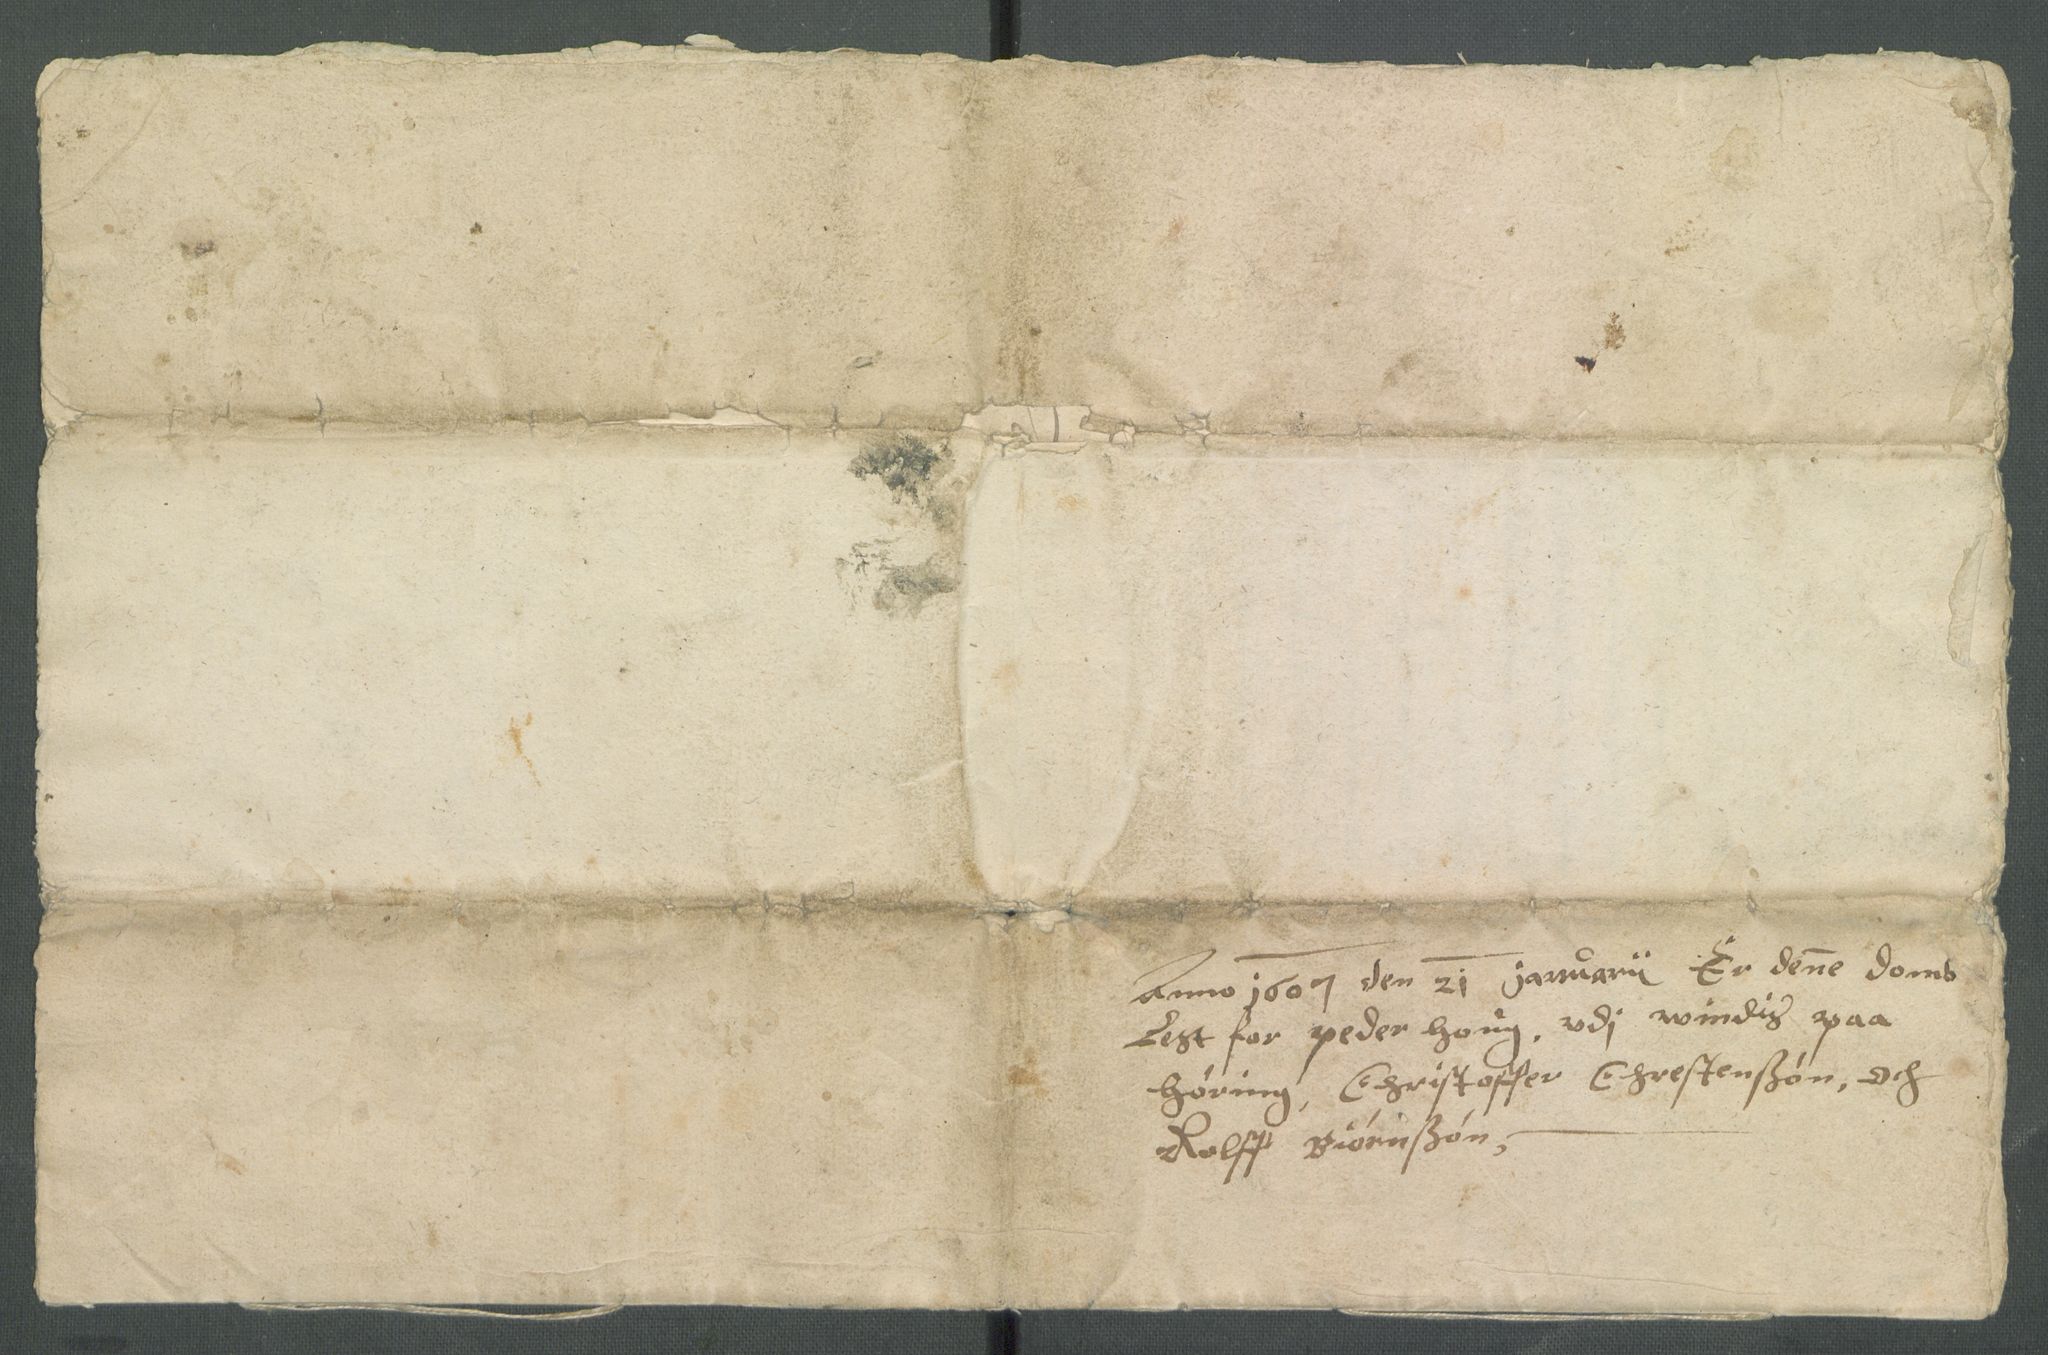 Anno 1607 den 21 januarij Er denne domb
Lest for peder houg, vdj windis paa
höring, Christoffer Chrestenßön, och
Rolff Biörnßön,